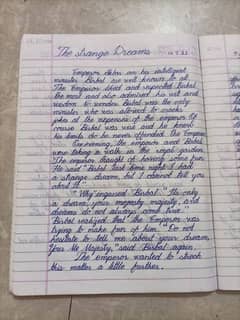 The strange Dreams
Emperor Akbar an his intelligent
minister Birbal are well known to all.
The Emperor liked and respected Birbal
the most and also admired his wit and
wisdom to wonder. Birbal was the only
minister who was allowed to crack
joke at the expenses of the emperor. Of
course Birbal was wise and he knew
his limits do he never offended the Emperor.
One evening, the emperor and Birbal
were taking a walk in the royal garden.
The emperor thought of having some fun.
He said "Birbal last time night I had
a strange dream, but I cannot tell you
about it."
"Why" enquired Birbal. "Its only
a dream, your majesty majesty, and
dreams do not always come true."
Birbal realized that the Emperor was
trying to make fun of him. "Do not
hesitate to tell me about your dream,
your Me Majesty," said Birbal again.
The emperor wanted to
this matter a little further.